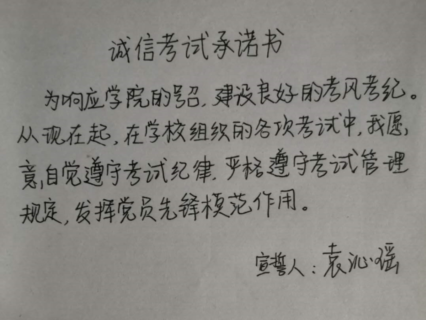 诚信考试承诺书
为响应学院的号召,建设良好的考风考纪。
从现在起,在学校组织的各项考试中,我愿
意,自觉遵守考试纪律,严格遵守考试管理
规定,发挥党员先锋模范作用。
宣誓人:袁沁瑶